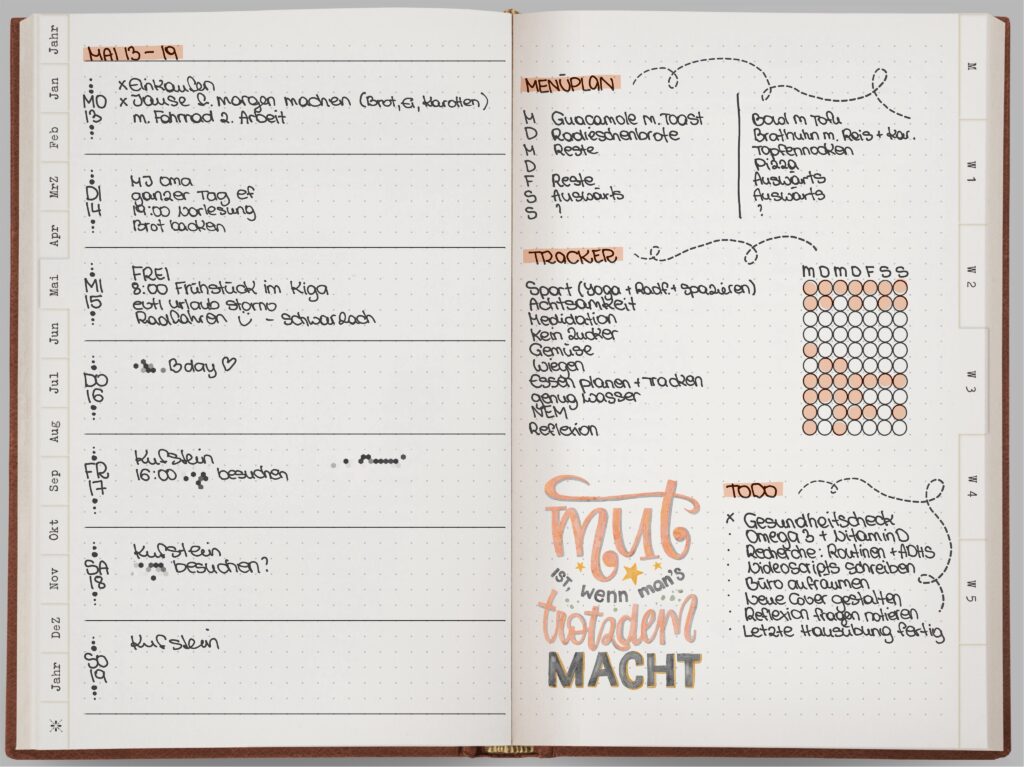 Jahr
Jan
Feb
MrZ
Apr
Mai
Jun
Jul
Aug
Sep
Okt
Nov
DeZ
Jahr
MAI 13 - 19
MO
13
x Einkaufen
x Jause f. morgen machen (Brot, Ei, Karotten)
m. Fahrrad z. Arbeit
DI
14
MJ Oma
ganzer Tag ef
19:00 Vorlesung
Brot backen
MI
15
FREI
8:00 Frühstück im Kiga
evtl Urlaub storno
Radlfahren - Schwarzach
DO
16
Bday ♡
FR
17
Kufstein
16:00 besuchen
SA
18
Kufstein
besuchen?
SO
19
Kufstein
MENÜPLAN
M Guacamole m. Toast Bowl m Tofu
D Radieschenbrote Brathuhn m. Reis + Kar.
M Reste Topfennocken
D Pizza
F Reste Auswärts
S Auswärts Auswärts
S ? ?
TRACKER
M D M D F S S
Sport (Yoga + Radf. + spazieren)
Achtsamkeit
Medidation
Kein Zucker
Gemüse
Wiegen
Essen planen + tracken
genug Wasser
NEM
Reflexion
mut
IST, wenn man's
trotzdem
MACHT
TODO
x Gesundheitscheck
· Omega 3 + Vitamin D
· Recherche: Routinen + ADHS
· Videoscripts schreiben
· Büro aufräumen
· Neue Cover gestalten
· Reflexion fragen notieren
· Letzte Hausübung fertig
M
W 1
W 2
W 3
W 4
W 5